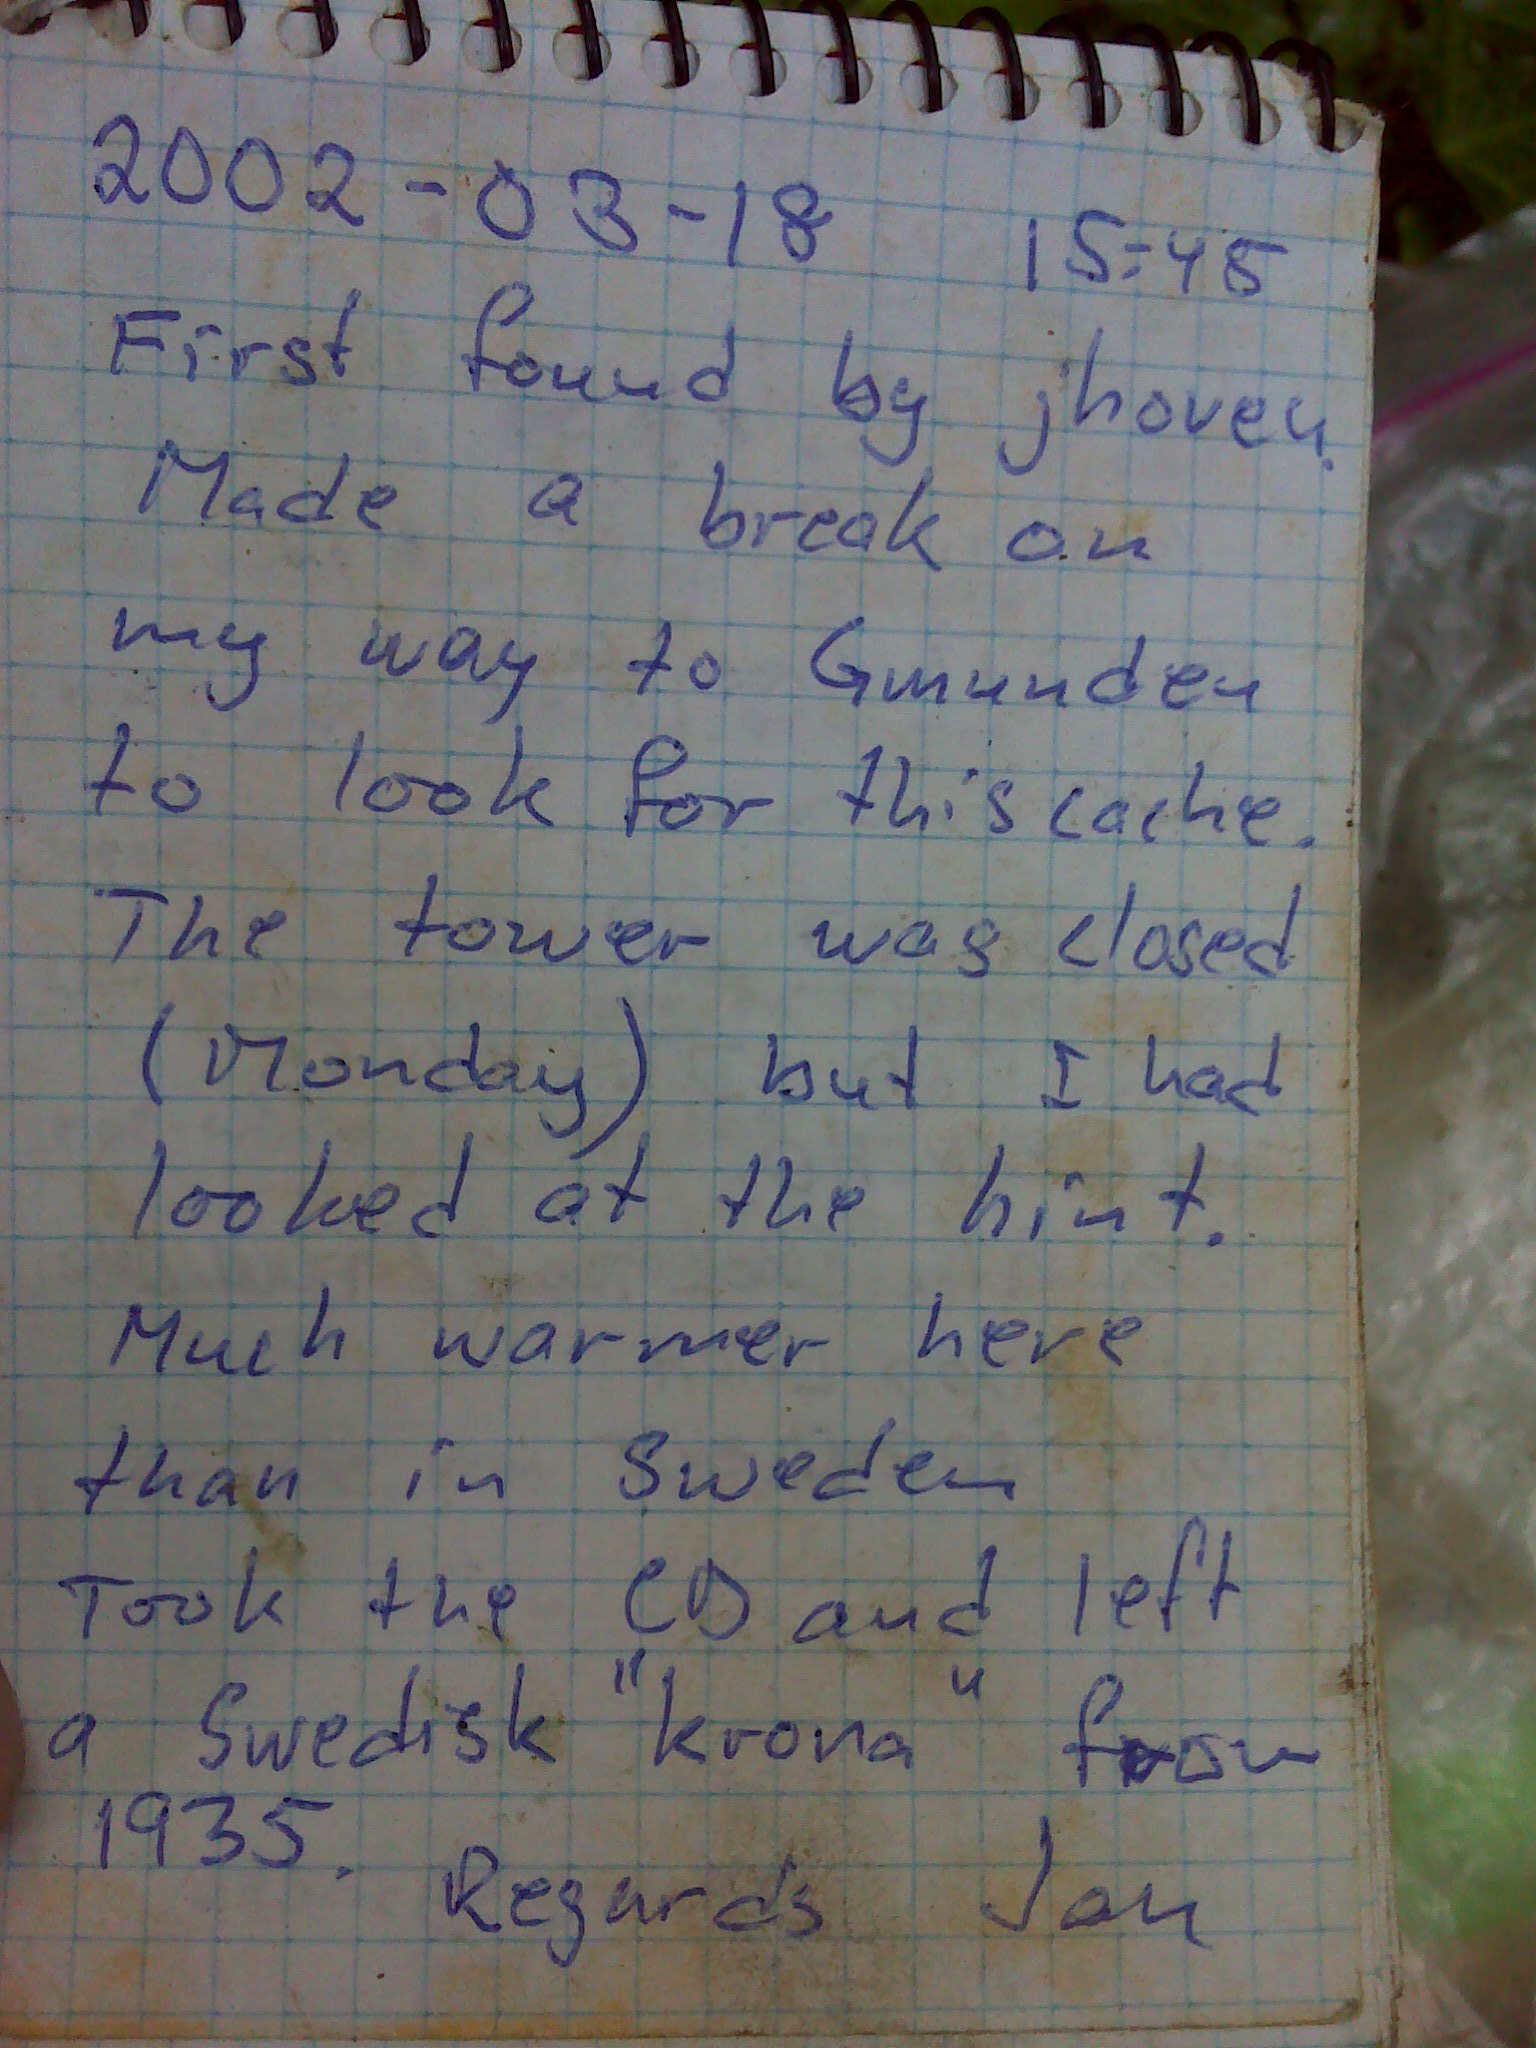 2002-03-18 15:45
First found by jhoven.
Made a break on
my way to Gmunden
to look for this cache.
The tower was closed
(Monday) but I had
looked at the hint.
Much warmer here
than in Sweden
Took the CD and left
a Swedisk "krona" from
1935. Regards Jan